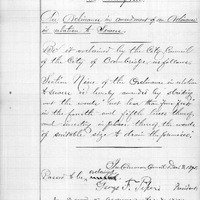 An Ordinance in amendment of an Ordinance
in relation to Sewers.
Be it ordained by the City Council
of the City of Cambridge, as follows.
Section Nine of the Ordinance in relation
to Sewers is hereby amended by striking
out the words "not less than four feet"
in the fourth and fifth lines thereof,
and inserting in place thereof, the words
of suitable size to drain the premises.
In Common Council Dec.
Passed to be ordained
President